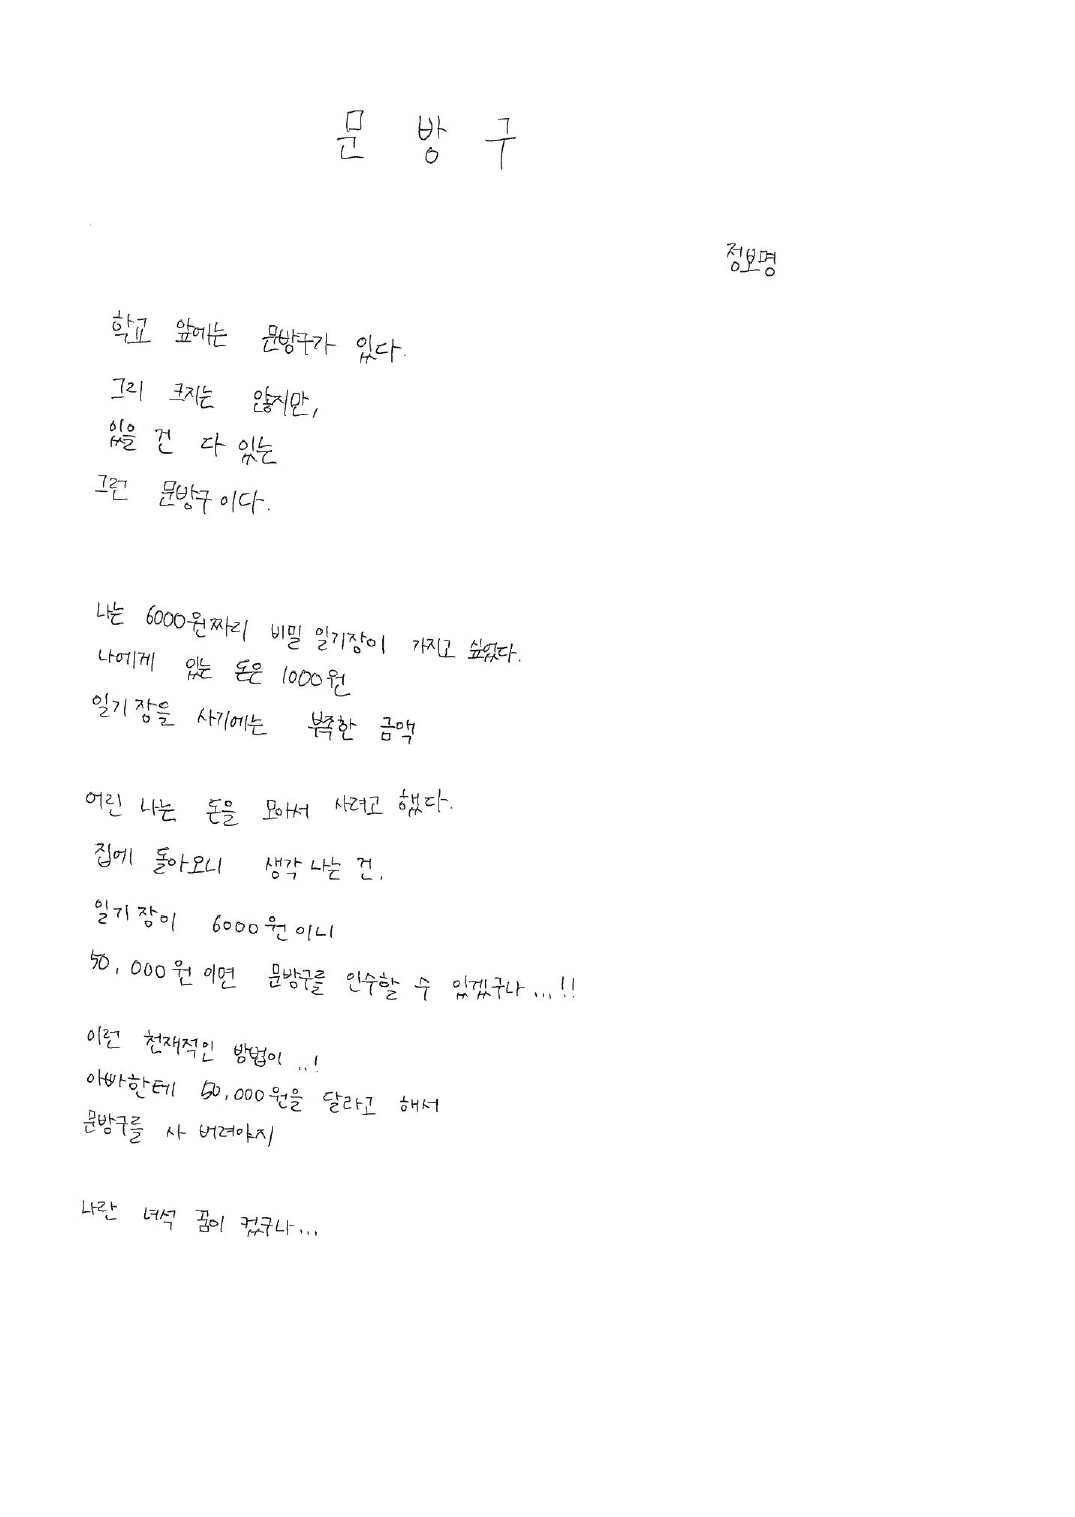 문방구
정보명
학교 앞에는 문방구가 있다.
그리 크지는 않지만,
있을 건 다 있는
그런 문방구이다.
나는 6000원짜리 비밀 일기장이 가지고 싶었다.
나에게 있는 돈은 1000원
일기장을 사기에는 부족한 금액
어린 나는 돈을 모아서 사려고 했다.
집에 돌아오니 생각나는 건,
일기장이 6000원이니
50,000원이면 문방구를 인수할 수 있겠구나...!!
이런 천재적인 방법이..!
아빠한테 50,000원을 달라고 해서
문방구를 사 버려야지
나란 녀석 꿈이 컸구나...